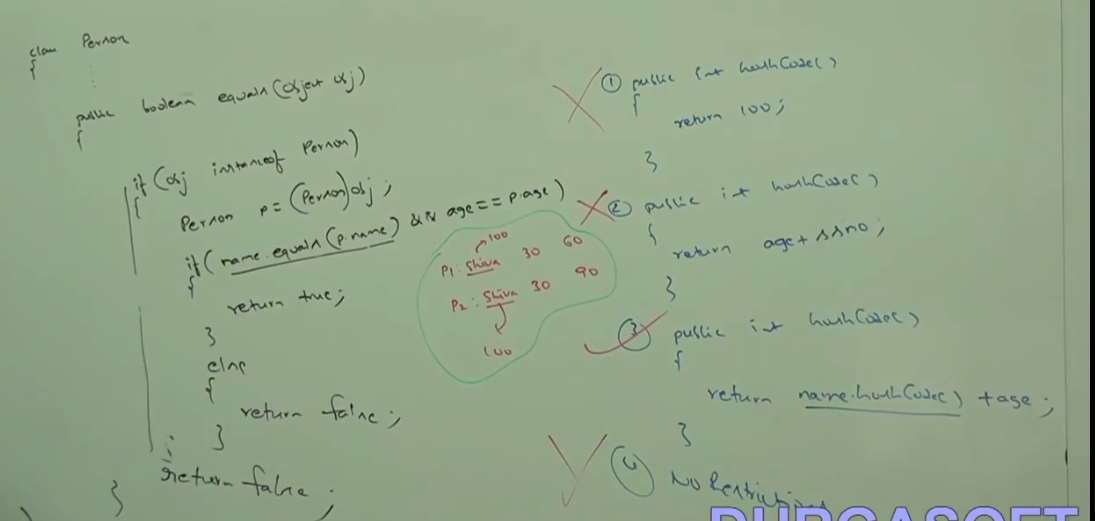 class Person
{
public boolean equals(Object obj)
{
if (obj instanceof Person)
{
Person p = (Person)obj;
if (name.equals(p.name) && age == p.age)
{
return true;
}
else
{
return false;
}
}
return false;
}
100
P1: Shiva 30 60
P2: Shiva 30 90
100
① public int hashCode()
{
return 100;
}
② public int hashCode()
{
return age + ssno;
}
③ public int hashCode()
{
return name.hashCode() + age;
}
④ No Restrictions
DURGASOFT